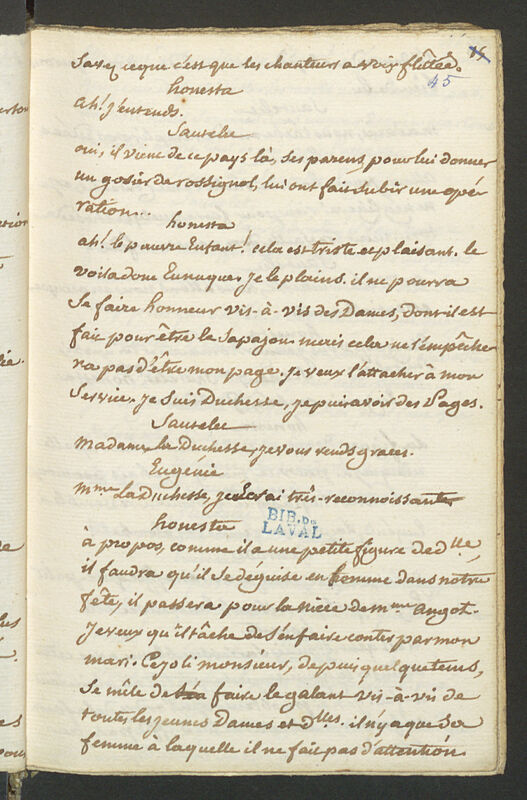 Savez ceque c'est que les chanteurs a voix flûtées.
15
45
honesta
ah! j'entends.
Sautelu
oui, il vient de ce pays là, ses parens, pour lui donner
un gosier de rossignol, lui ont fait subir une opé-
ration...
honesta
ah! le pauvre Enfant! cela est triste et plaisant. le
voila donc Eunuque. je le plains. il ne pourra
se faire honneur vis-à-vis des Dames, dont il est
fait pour être le Sapajou. mais cela ne l'empêche-
ra pas d'être mon page. je veux l'attacher à mon
Service. je suis Duchesse, je puis avoir des Pages.
Sautelu
Madame La Duchesse, je vous rends graces.
Eugenie
mme La Duchesse, je serai très-reconnoissante
honesta
BIB. DE
LAVAL
à propos, comme il a une petite figure de dlle,
il faudra qu'il se déguise en femme dans notre
fête, il passera pour la niéce de mme angot.
Je veux qu'il tâche de s'en faire conter par mon
mari. Ce joli monsieur, depuis quelque tems,
Se mêle de faire le galant vis-à-vis de
toutes les jeunes Dames et dlles. il n'y a que sa
femme à laquelle il ne fait pas d'attention.